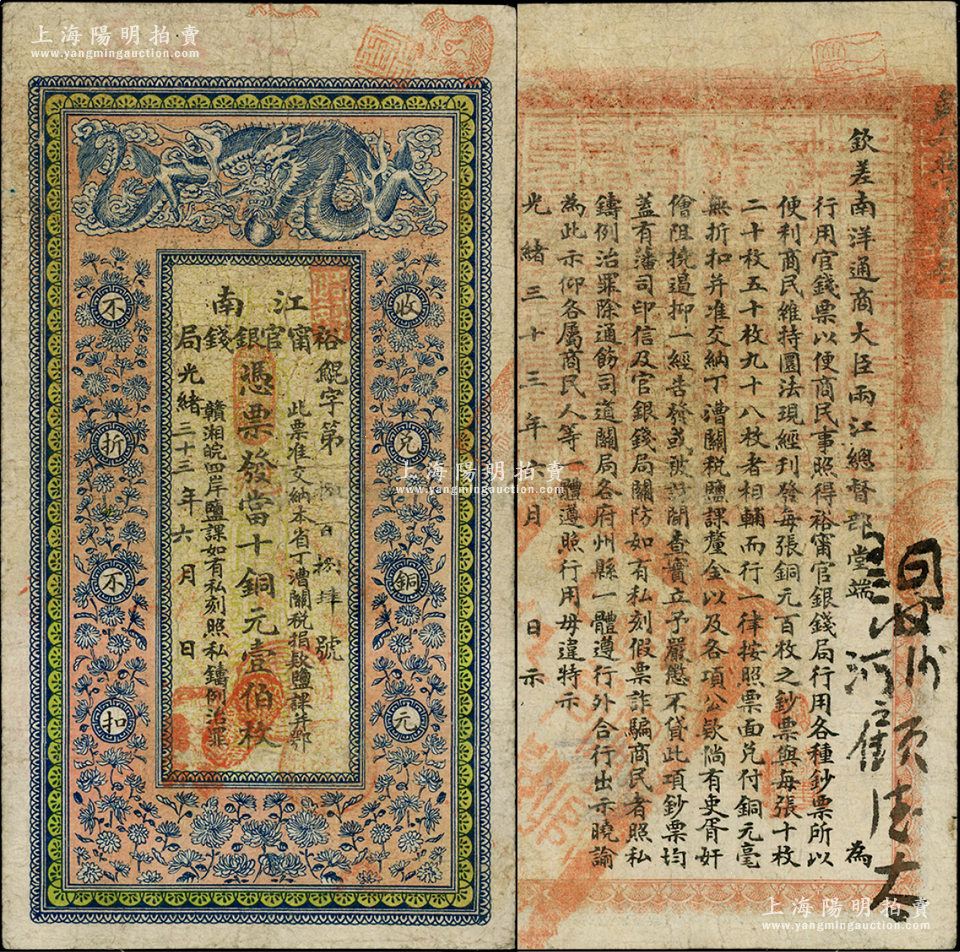 上海陽明拍賣
www.yangmingauction.com
江南
裕甯官銀錢局
鯤字第捌百捌拾肆號
此票准交納本省丁漕關稅捐款鹽課并鄂
憑票發當十銅元壹佰枚
贛湘皖四岸鹽課如有私刻照私鑄例治罪
光緒三十三年六月 日
收兌銅元
不折不扣
上海陽明拍賣
www.yangmingauction.com
欽差南洋通商大臣兩江總督部堂端 為
行用官錢票以便商民事照得裕甯官銀錢局行用各種鈔票所以
便利商民維持圜法現經刊發每張銅元百枚之鈔票與每張十枚
二十枚五十枚九十八枚者相輔而行一律按照票面兌付銅元毫
無折扣并准交納丁漕關稅鹽課釐金以及各項公款倘有吏胥奸
儈阻撓遏抑一經告發或被訪聞查實立予嚴懲不貸此項鈔票均
蓋有藩司印信及官銀錢局關防如有私刻假票詐騙商民者照私
鑄例治罪除通飭司道關局各府州縣一體遵行外合行出示曉諭
為此示仰各屬商民人等一體遵照行用毋違特示
光緒三十三年六月 日示
上海陽明拍賣
www.yangmingauction.com
上海陽明拍賣
www.yangmingauction.com